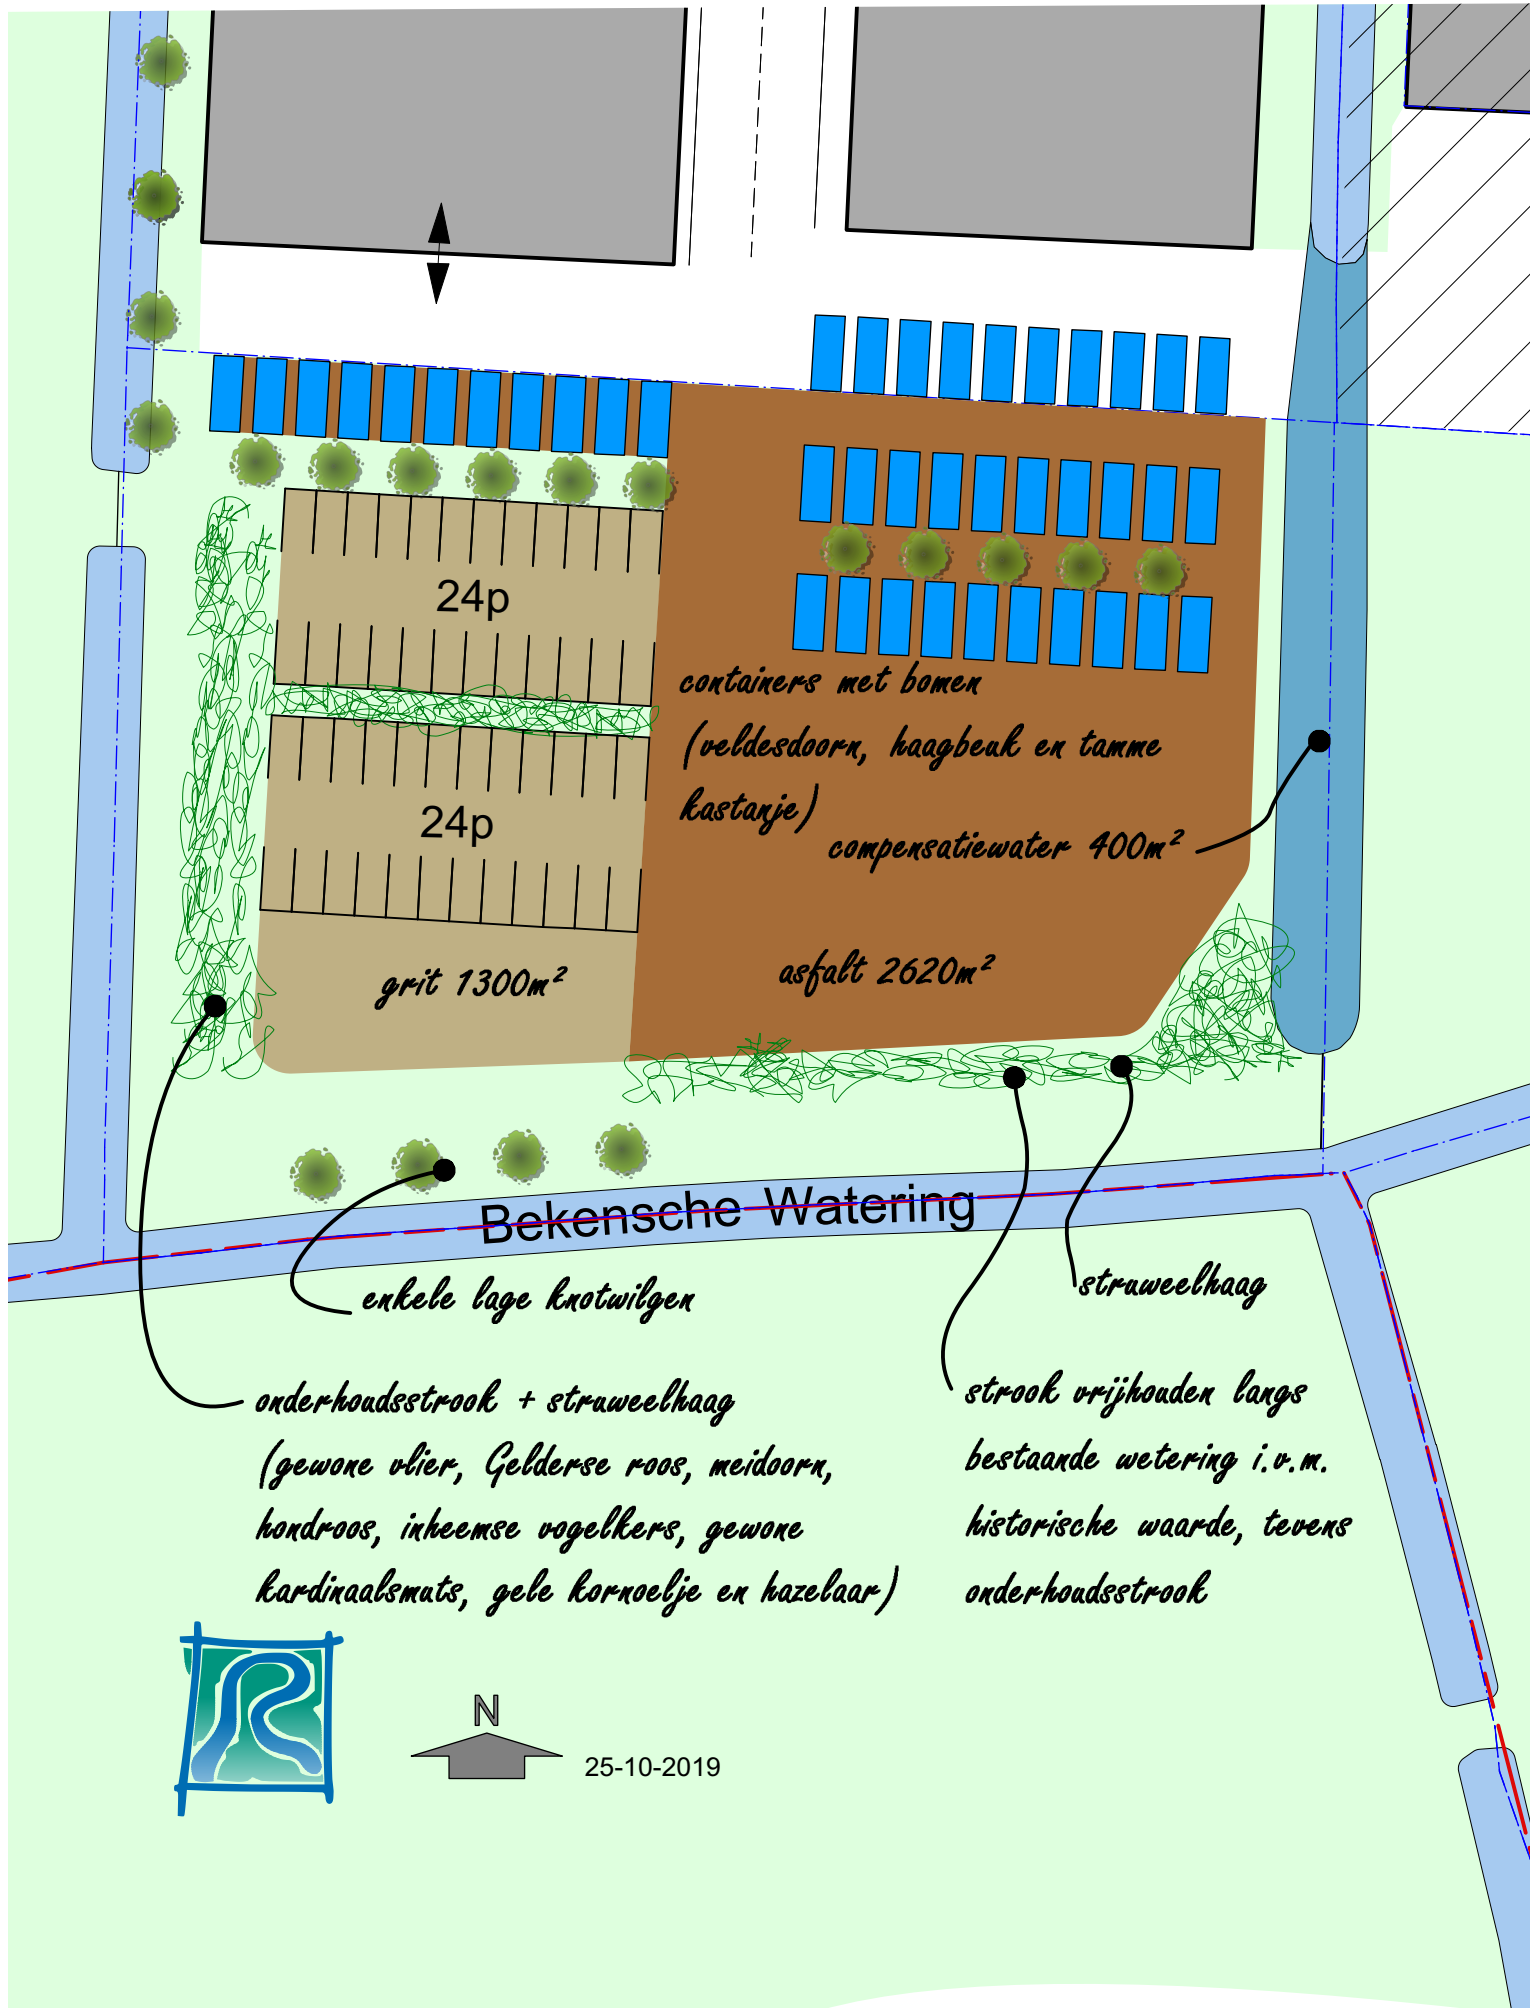 24p
containers met bomen
(veldesdoorn, haagbeuk en tamme
kastanje)
24p
compensatiewater 400m²
grit 1300m²
asfalt 2620m²
Bekensche Watering
enkele lage knotwilgen
struweelhaag
onderhoudsstrook + struweelhaag
(gewone vlier, Gelderse roos, meidoorn,
hondroos, inheemse vogelkers, gewone
kardinaalsmuts, gele kornoelje en hazelaar)
strook vrijhouden langs
bestaande wetering i.v.m.
historische waarde, tevens
onderhoudsstrook
N
25-10-2019